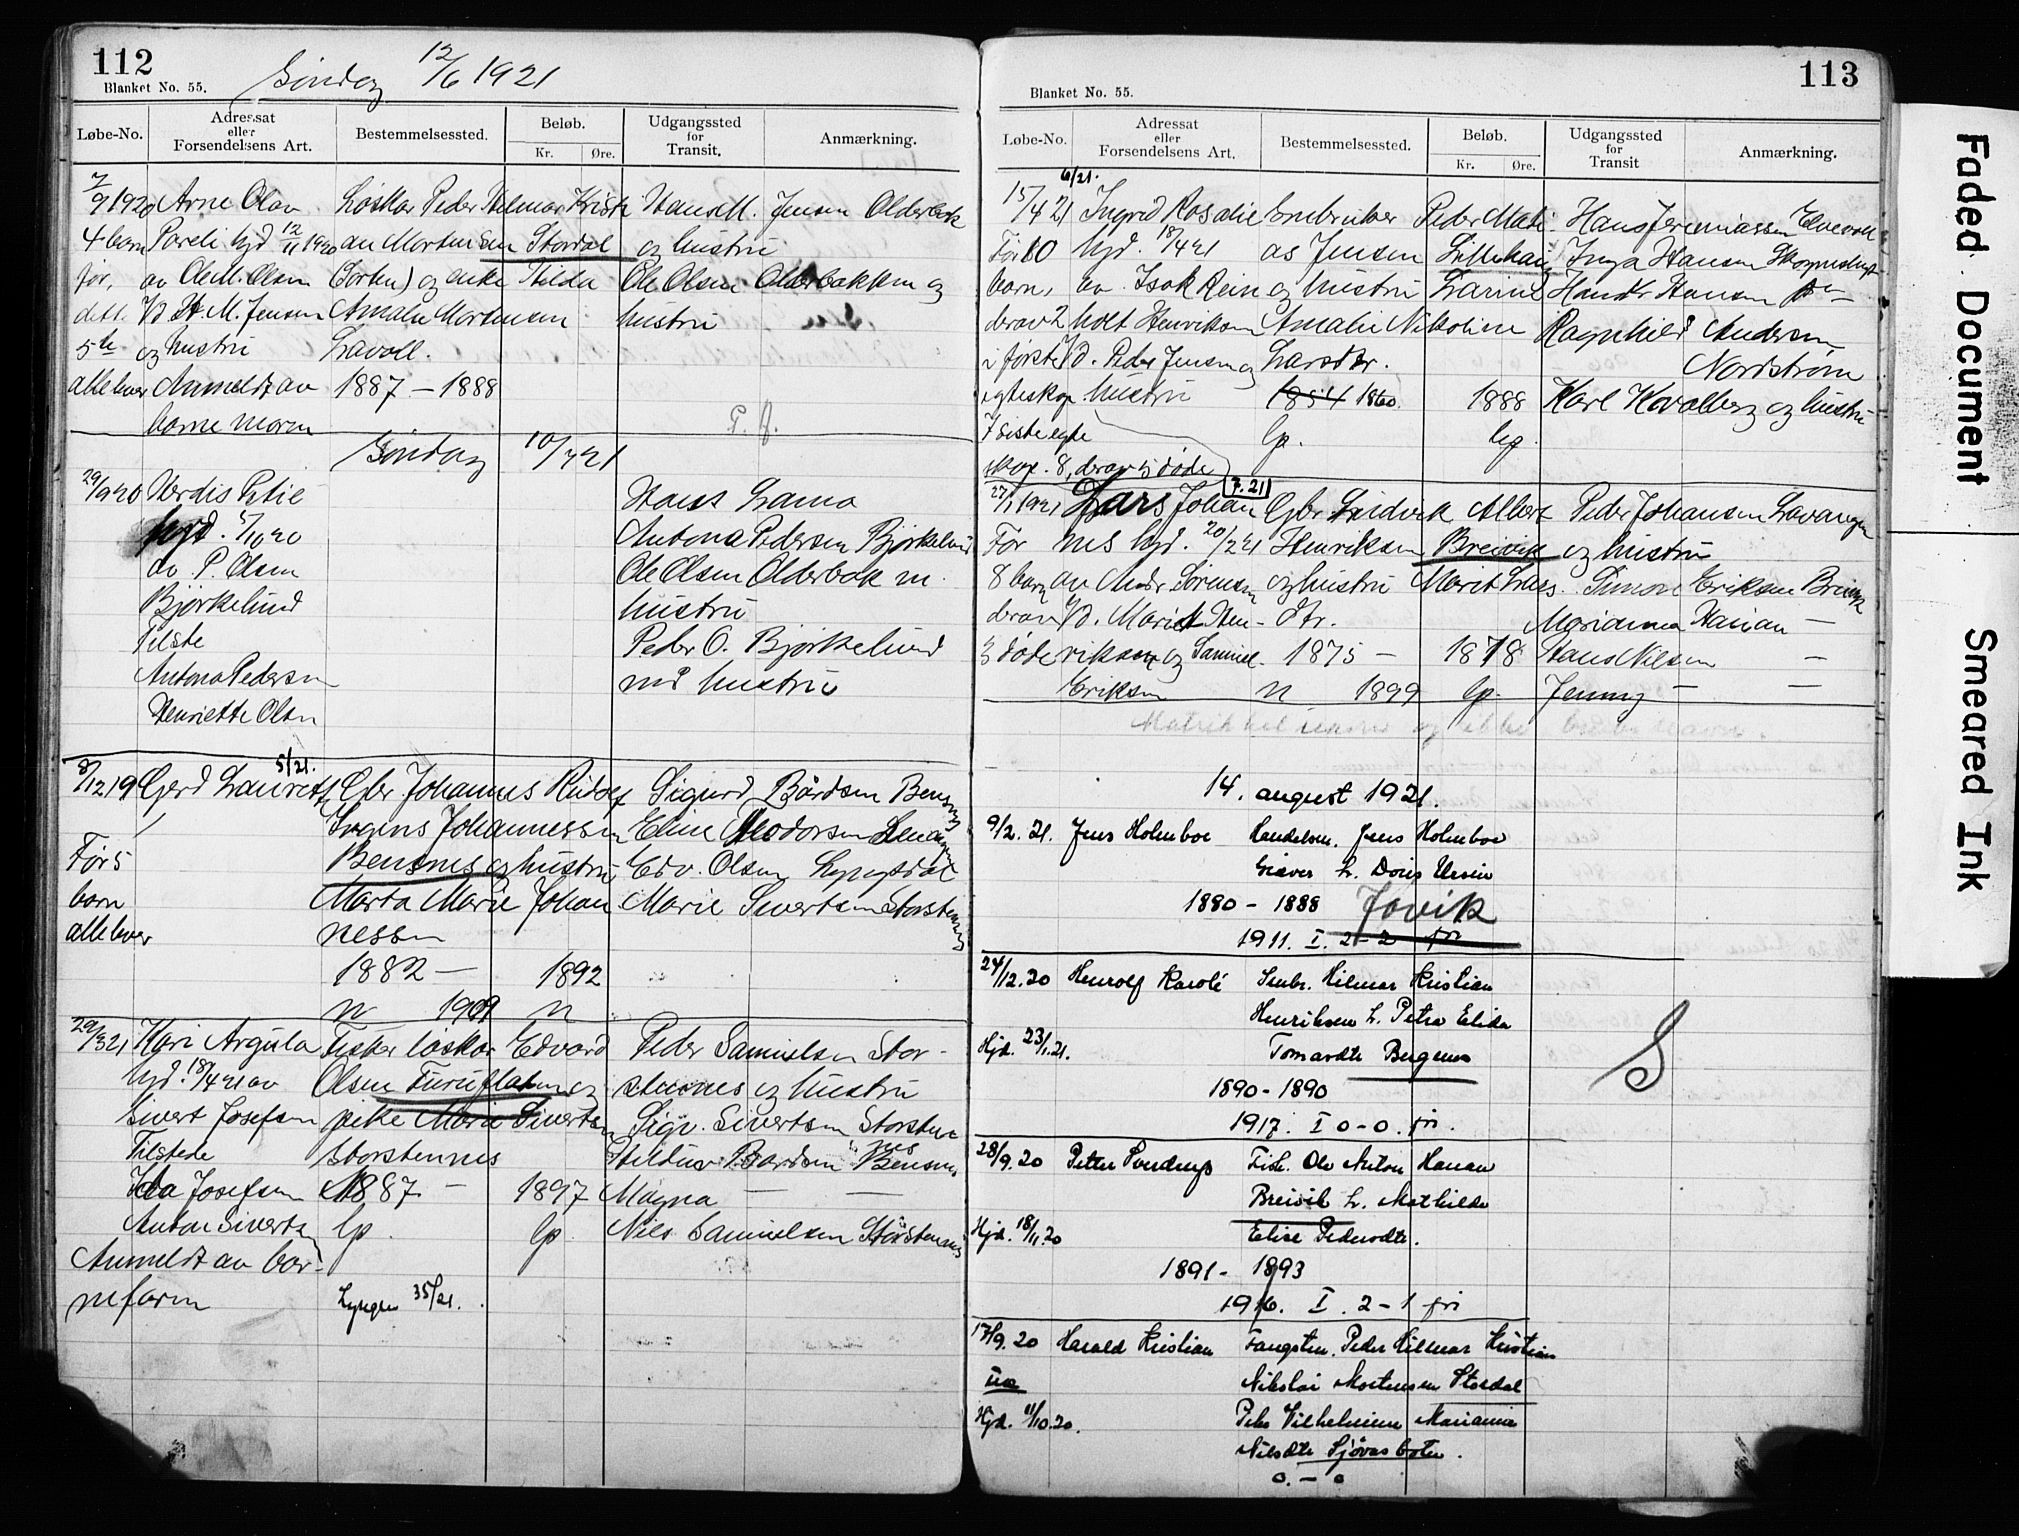 112
Blanket No. 55.
Søndag 12/6 1921
Løbe-No.
Adressat
eller
Forsendelsens Art.
Bestemmelsessted.
Beløb.
Kr.
Øre.
Udgangssted
for
Transit.
Anmærkning.
7/9 1920 Arne Olav Løskar Peder Hilmar Kristi Hans M. Jensen Olderbak
4 barn Pareli hjd 12/11 1920 an Mortensen Stordal og hustru
før, av Ole M. Olsen (Sorten) og enke Hilda Ole Olsen Olderbakken og
dette Vd H. M. Jensen Amalie Mortensen hustru
5te og hustru Lavoll.
alle lever Anmeldt av 1887 - 1888
barne moren
P. J.
Søndag 10/7 21
29/9 20 Herdis Petie Hans Lama
hjd. 5/10 20 Antona Pedersen Bjørkelund
av P. Olsen Ole Olsen Olderbak m.
Bjørkelund hustru
Tilste Peder O. Bjørkelund
Antona Pedersen m. hustru
Henriette Olsn
5/21.
8/12 19 Gerd Laurette Gbr Johannes Rudolf Sigurd Bårdsen Bensnes
Johannessen Eline Teodorsen
Før 5 Bensnes og hustru Edv. Olsen Lyngsdal
barn Marta Marie Johan Marie Sivertsen Storstennes
alle lever nessen
1882 - 1892
n 1909 n
29/3 21 Kari Argula Fisker løskar Edvard Peder Samuelsen Stor-
hjd. 18/4 21 av Olsen Furuflaten og stennes og hustru
Sivert Josefsen pike Marie Sivertsen Sigv. Sivertsen Storsten
nes
Tilstede Storstennes Hildur Bardsen Bensnes
Ida Josefsen 1887 - 1897 Magna — —
Anton Sivertsn lp. lp. Nils Samuelsen Storstennes
Anmeldt av bar-
nefaren Lyngen 35/21.
113
Blanket No. 55.
Løbe-No.
Adressat
eller
Forsendelsens Art.
Bestemmelsessted.
Beløb.
Kr.
Øre.
Udgangssted
for
Transit
Anmærkning.
6/21.
15/4 21 Ingrid Rosalie Småbruker Peder Mati Hans Jeremiassen Elvevoll
Før 10 hjd. 18/4 21 as Jensen Lillehaug Inga Hansen
barn, av Isak Rein og hustru Larine Hansen
derav 2 holt Henriksen Amalie Nikoline Ragnhild Andersen
i første Vd. Peder Jensen og Larsdtr. Nordstrøm
egteskap hustru 1854 1860. 1888 Karl Kovalberg og hustru
I siste egte lp. lp
skap. 8, derav 5 døde
7.21
27/1 1921 Lars Johan Gbr Ludvik Albert Peder Johansen Lavangen
Før nes hjd. 20/2 21 Henriksen Breivik og hustru
8 barn av Andr Sørensen og hustru Marit Lars. Simon Eriksen Breivik
derav Vd. Marit Hen- dtr. Marianna Hanan —
3 døde riksen og Samuel 1875 - 1878 Hans Nilsen —
Eriksen n 1899 lp. Jenny — —
14. august 1921.
9/2. 21. Jens Holmboe Handelsm. Jens Holmboe
Giæver h. Doris Ursin
1880 - 1888 Jøvik
1911. I. 2-2 fri
24/12.20 Henrolf Karolé Småbr. Hilmar Kristian
Henriksen h. Petra Elida
Hjd. 23/1.21. Tomasdtr
1890 - 1890
1917. I 0-0. fri.
S
28/9.20 Petter Sverdrup Fisk. Ole Anton Hanan
Breivik h. Mathilde
Hjd. 18/11.20 Elise Pedersdtr.
1891 - 1893
1916. I. 2-1 fri
17/9.20 Harald Kristian Fangstm. Peder Hilmar Kristian
ua Nikolai Mortensen Stordal
Hjd. 11/10.20. Pike Vilhelmine Marianne
Nilsdtr Sjøvasboten.
0. - 0
Faded Document
Smeared Ink